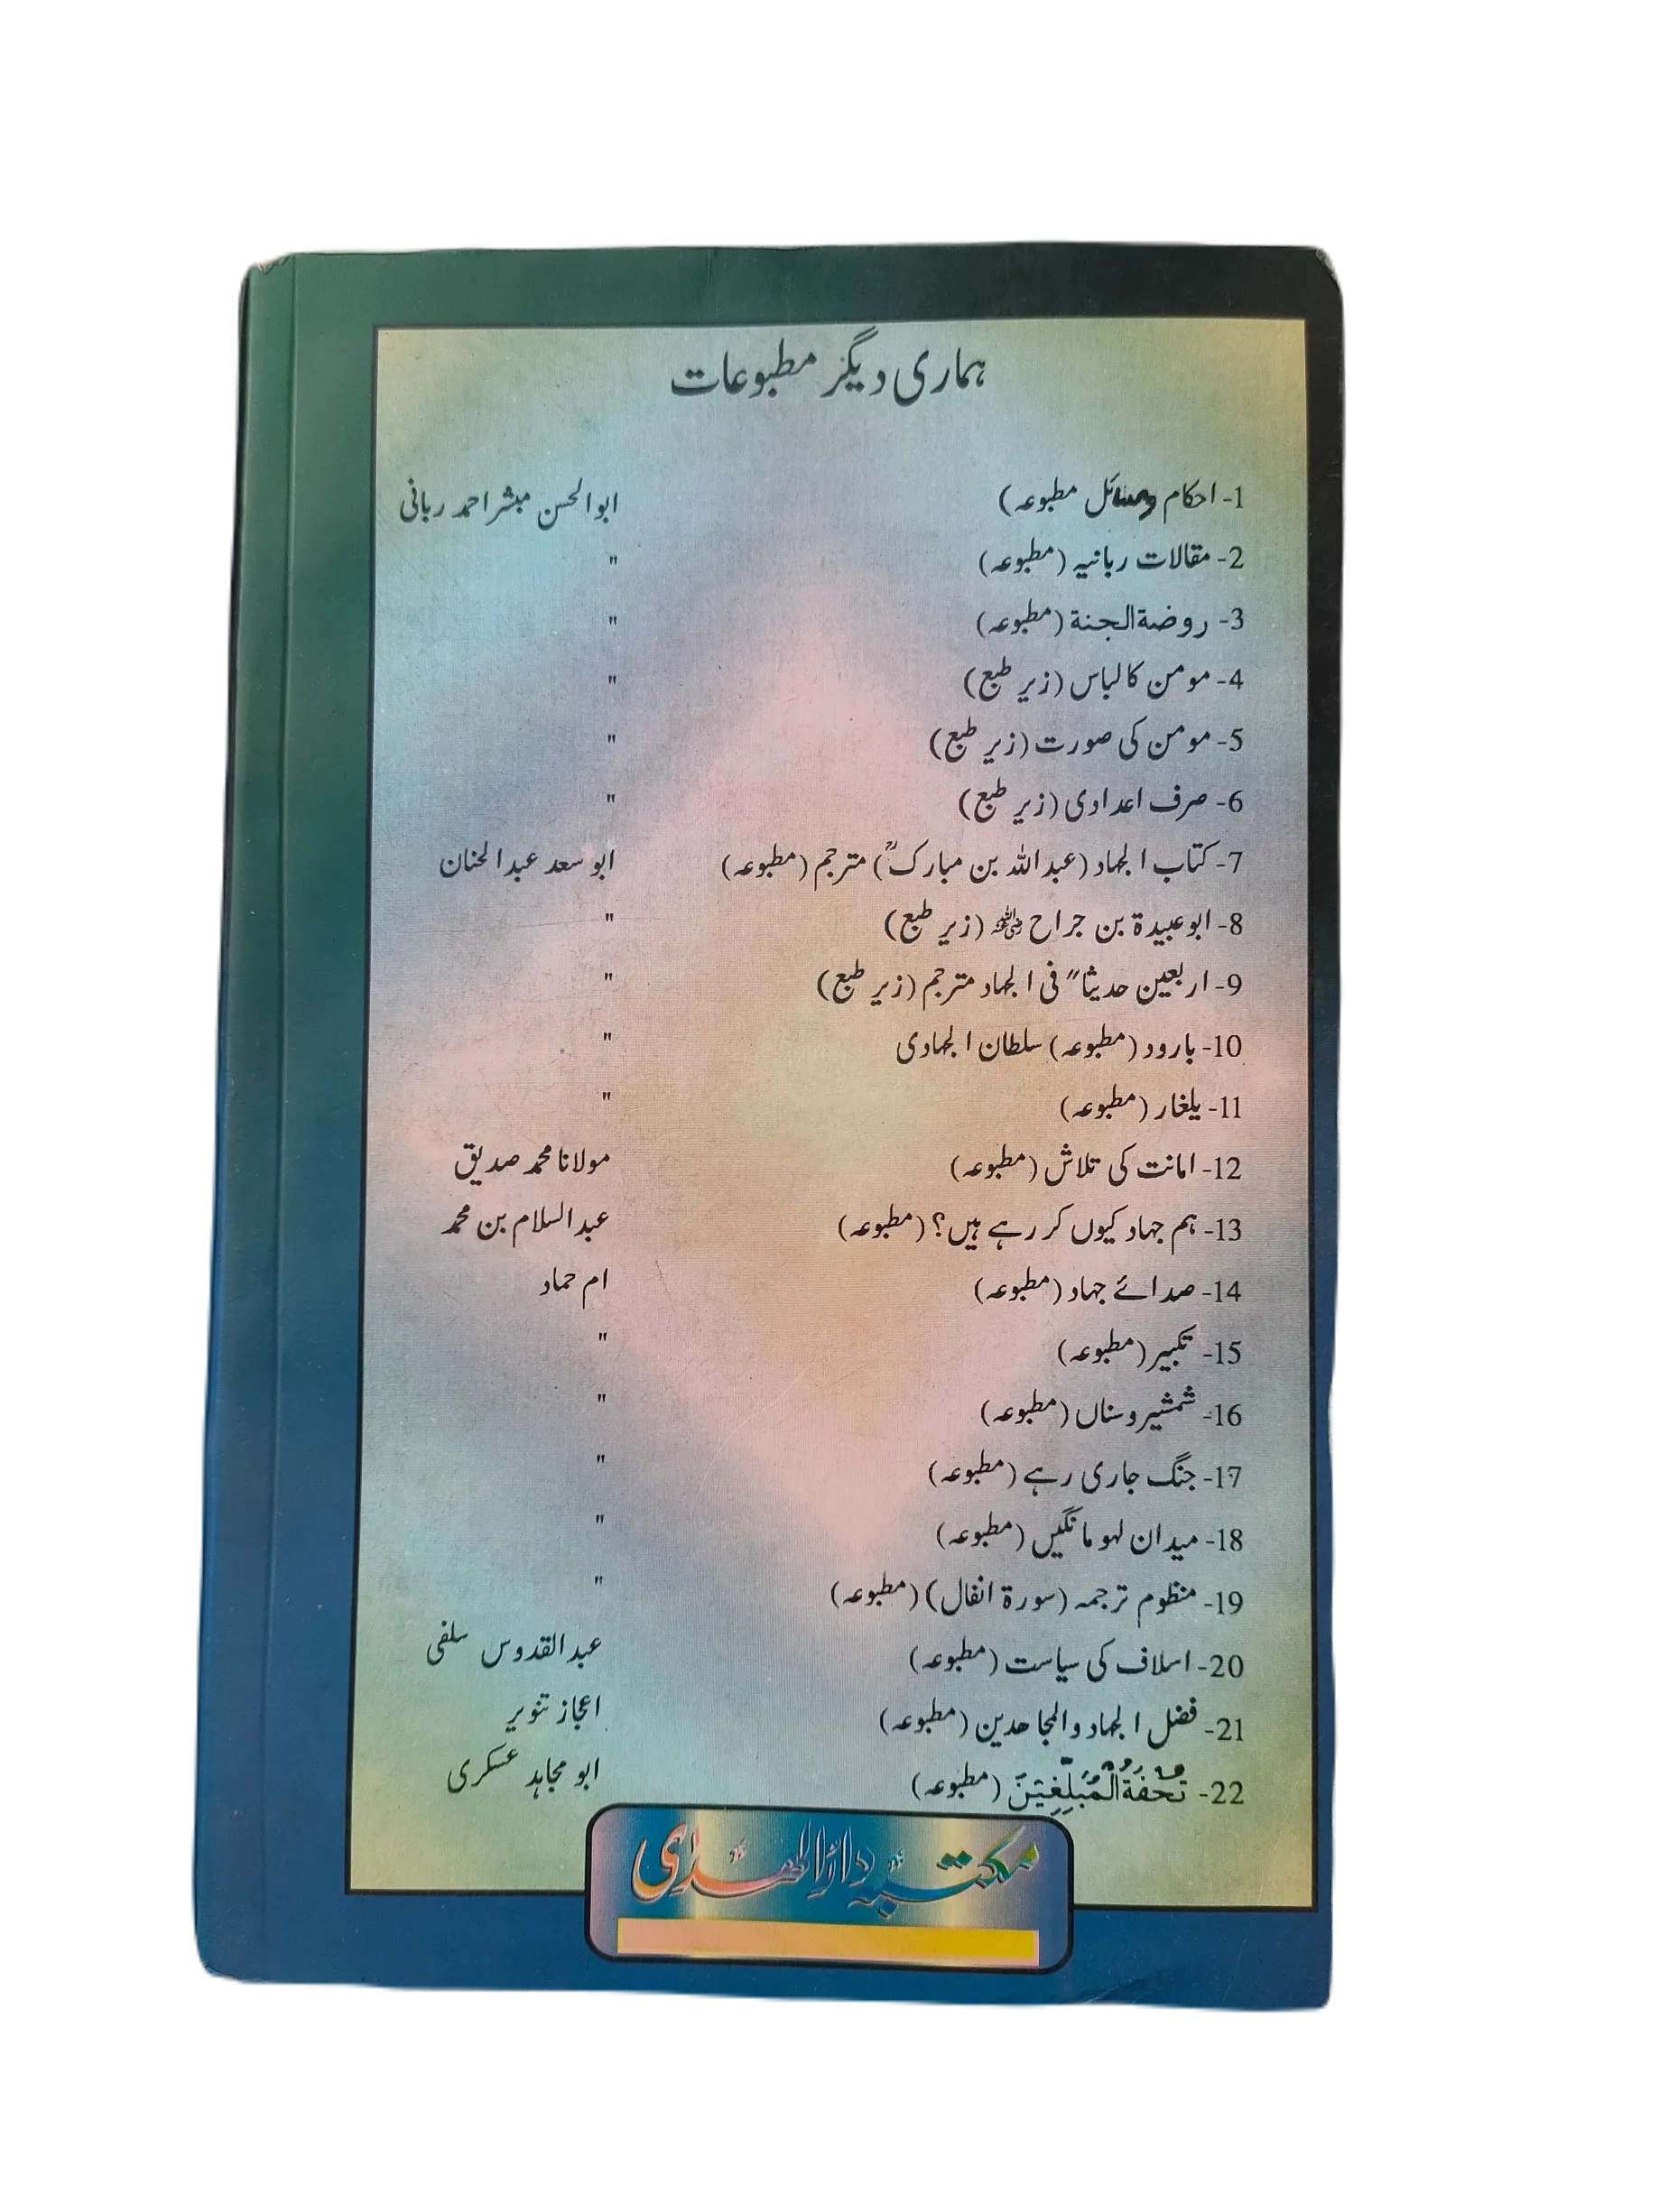 ہماری دیگر مطبوعات
1- احکام ومسائل مطبوعہ) ابوالحسن مبشر احمد ربانی
2- مقالات ربانیہ (مطبوعہ) "
3- روضۃ الجنۃ (مطبوعہ) "
4- مومن کا لباس (زیر طبع) "
5- مومن کی صورت (زیر طبع) "
6- صرف اعدادی (زیر طبع) "
7- کتاب الجہاد (عبداللہ بن مبارکؒ) مترجم (مطبوعہ) ابو سعد عبدالحنان
8- ابوعبیدۃ بن جراح رضی اللہ عنہ (زیر طبع) "
9- اربعین حدیثا" فی الجہاد مترجم (زیر طبع) "
10- بارود (مطبوعہ) سلطان الجہادی "
11- یلغار (مطبوعہ) "
12- امانت کی تلاش (مطبوعہ) مولانا محمد صدیق
13- ہم جہاد کیوں کر رہے ہیں؟ (مطبوعہ) عبدالسلام بن محمد
14- صدائے جہاد (مطبوعہ) ام حماد
15- تکبیر (مطبوعہ) "
16- شمشیر و سناں (مطبوعہ) "
17- جنگ جاری رہے (مطبوعہ) "
18- میدان لہو مانگیں (مطبوعہ) "
19- منظوم ترجمہ (سورۃ انفال) (مطبوعہ) "
20- اسلاف کی سیاست (مطبوعہ) عبدالقدوس سلفی
21- فضل الجہاد والمجاھدین (مطبوعہ) اعجاز تنویر
22- تُحْفَةُ الْمُبَلِّغِيْنَ (مطبوعہ) ابو مجاہد عسکری
مکتبہ دارالھدی